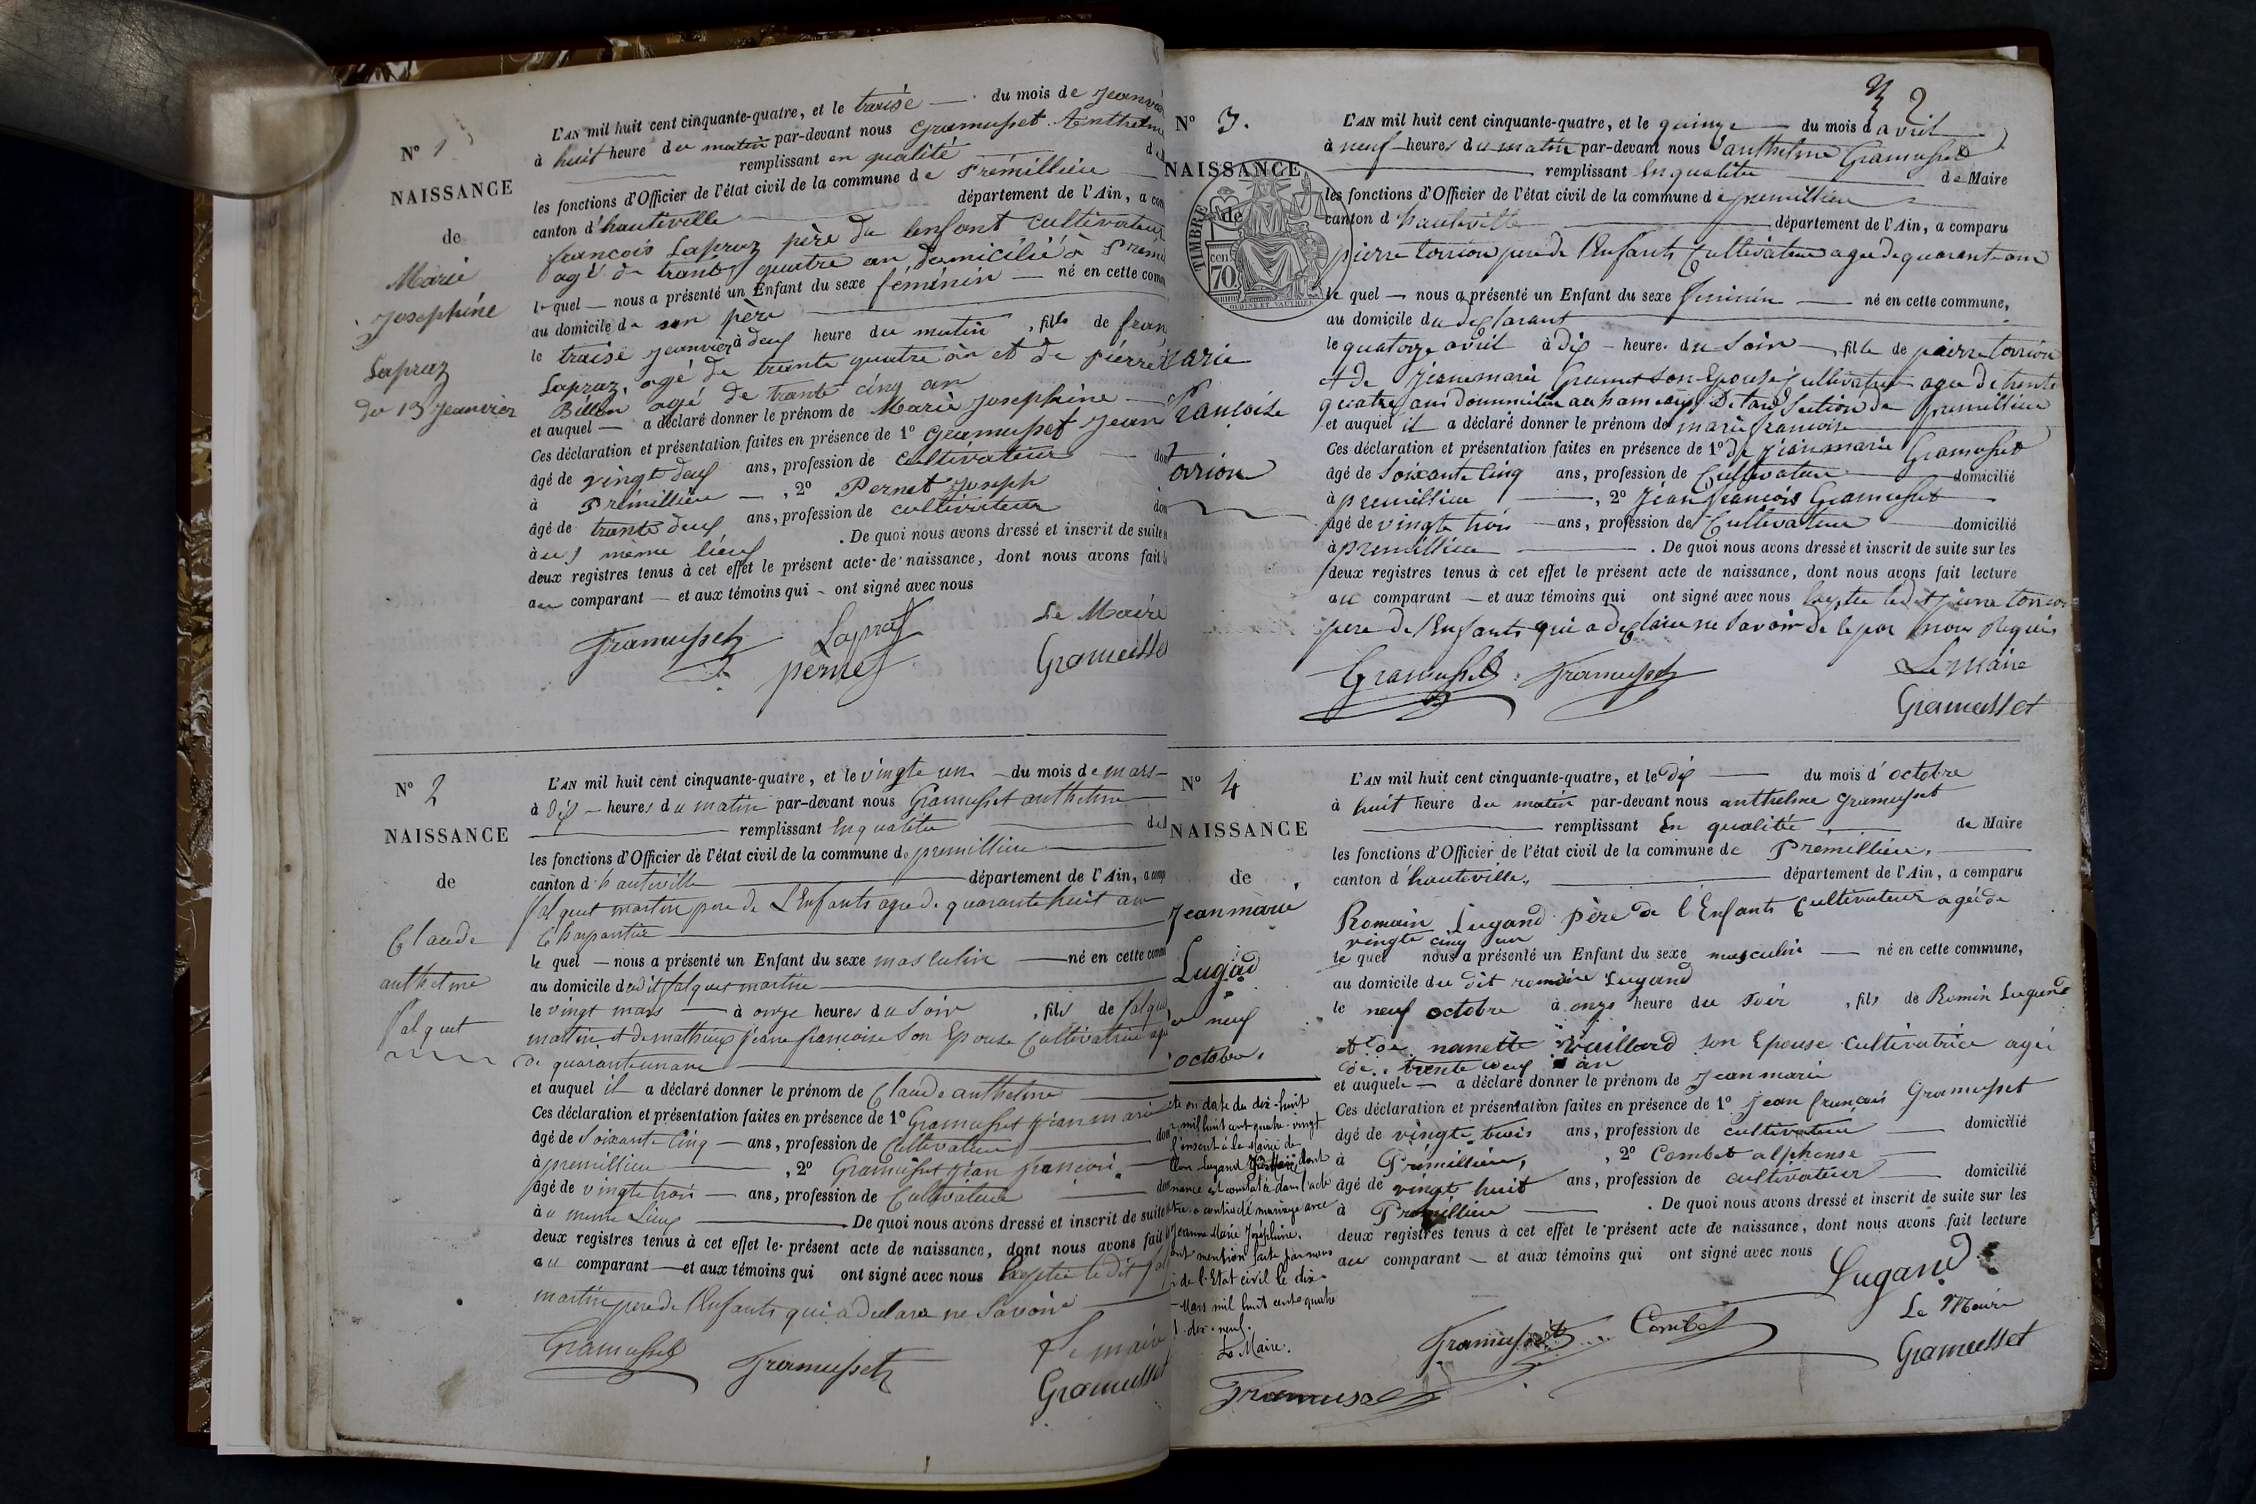 N° 1
NAISSANCE
de
Marie
Josephine
Lapraz
du 13 Jeanvier
L'AN mil huit cent cinquante-quatre, et le traise — du mois de Jeanvi
à huit heure du matin par-devant nous Gramusset Anthelm
remplissant en qualité de
les fonctions d'Officier de l'état civil de la commune de Prémillieu
canton d'hauteville département de l'Ain, a com
francois Lapraz père de lenfant cultivateur
agé de trante quatre an domicilié à Prémi
le quel — nous a présenté un Enfant du sexe féminin — né en cette comm
au domicile de son père
le traise jeanvier à deux heure du matin , fils de fran
Lapraz, agé de trante quatre an et de piérret
Billon agé de trante cinq an
et auquel — a déclaré donner le prénom de Marie Josephine —
Ces déclaration et présentation faites en présence de 1° Gramusset Jean
âgé de vingt deux ans, profession de cultivateur — dom
à Prémillieu — , 2° Pernet Joseph
âgé de trante deux ans, profession de cultivateur dom
à us même lieux . De quoi nous avons dressé et inscrit de suite
deux registres tenus à cet effet le présent acte de naissance, dont nous avons fait
au comparant — et aux témoins qui - ont signé avec nous
Gramusset Lapraz Le Maire
pernet Gramusset
N° 2
NAISSANCE
de
Claude
anthelme
falquet
L'AN mil huit cent cinquante-quatre, et le vingte un — du mois de mars —
à dix — heures du matin par-devant nous Gramusset anthelme
remplissant En qualitée de
les fonctions d'Officier de l'état civil de la commune de premillieu
canton d'hauteville département de l'Ain, a comp
falquet martin pere de L'Enfants agée de quarante huit an
Charpantier
le quel — nous a présenté un Enfant du sexe masculin — né en cette comm
au domicile du dit falquet martin
le vingt mars — à onze heures du Soir , fils de falque
martin et de mathieux jéane francoise Son Epouse Cultivatrice agé
de quarante un ans
et auquel il a déclaré donner le prénom de Claude anthelme
Ces déclaration et présentation faites en présence de 1° Gramusset jéan marie
âgé de Soixante Cinq — ans, profession de Cultivateur dom
à premillieu , 2° Gramusset jéan francois
âgé de vingte trois — ans, profession de Cultivateur dom
à u meme Lieux . De quoi nous avons dressé et inscrit de suite
deux registres tenus à cet effet le présent acte de naissance, dont nous avons fait
au comparant — et aux témoins qui ont signé avec nous Exeptée le dit fal
martin pere de l'Enfants qui a declare ne Savoire
Gramusset Gramusset Le maire
Gramusset
2
N° 3.
NAISSANCE
de
TIMBRE
70
cen
arie
francoise
orrion
L'AN mil huit cent cinquante-quatre, et le quinze — du mois d avril
à neuf heures du matin par-devant nous anthelme Gramusset
remplissant En qualitée de Maire
les fonctions d'Officier de l'état civil de la commune de premillieu
canton d'hauteville département de l'Ain, a comparu
pierre torrion pere de l'Enfants Cultivateur agee de quarante ans
le quel — nous a présenté un Enfant du sexe feminin — né en cette commune,
au domicile du déclarant
le quatorze avril à dix - heures du Soir — , fille de pierre torrion
et de jéane marie Gramusset Son Epouse Cultivateur agee de trente
quatre ans Section de premillieu
et auquel il a déclaré donner le prénom de marie francoise
Ces déclaration et présentation faites en présence de 1° de jéan marie Gramusset
âgé de Soixante Cinq ans, profession de Cultivateur domicilié
à premillieu , 2° Jéan francois Gramusset
âgé de vingte trois — ans, profession de Cultivateur domicilié
à premillieu . De quoi nous avons dressé et inscrit de suite sur les
deux registres tenus à cet effet le présent acte de naissance, dont nous avons fait lecture
au comparant — et aux témoins qui ont signé avec nous Exeptee ledit pierre torrion
pere de l'Enfants qui a declaree ne Savoir de le par nous Requis
Gramusset Gramusset Le maire
Gramusset
N° 4
NAISSANCE
de
Jean marie
Lugand
neuf
octobre.
L'AN mil huit cent cinquante-quatre, et le dix — du mois d' octobre
à huit heure du matin par-devant nous anthelme Gramusset
remplissant En qualitée de Maire
les fonctions d'Officier de l'état civil de la commune de Prémillieu,
canton d'hauteville, département de l'Ain, a comparu
Romain Lugand père de l'Enfants Cultivateur agé de
vingte cinq an
le quel nous a présenté un Enfant du sexe masculin — né en cette commune,
au domicile du dit romain Lugand
le neuf octobre à onze heure du soir , fils de Romin Lugand
et de nanette vuillard son Epouse Cultivatrice agée
de trente deux an
et auquel — a déclaré donner le prénom de Jean marie
Ces déclaration et présentation faites en présence de 1° Jean francois Gramusset
âgé de vingte trois ans, profession de cultivateur — domicilié
à Prémillieu, , 2° Combet alphonse
âgé de vingte huit ans, profession de cultivateur domicilié
à Prémillieu . De quoi nous avons dressé et inscrit de suite sur les
deux registres tenus à cet effet le présent acte de naissance, dont nous avons fait lecture
au comparant — et aux témoins qui ont signé avec nous
Lugand
Gramusset Combet Le Maire
Gramusset
cte en date du dix-huit
mil huit cent quatre-vingt
inscrit à la Mairie de
Lugand dont
naissance est constatée dans l'acte
contracté mariage avec
Jeanne Marie Joséphine.
ont mention faite par nous
de l'Etat civil le dix-
Mars mil huit cent quatre
dix-neuf.
Le Maire.
Gramusset